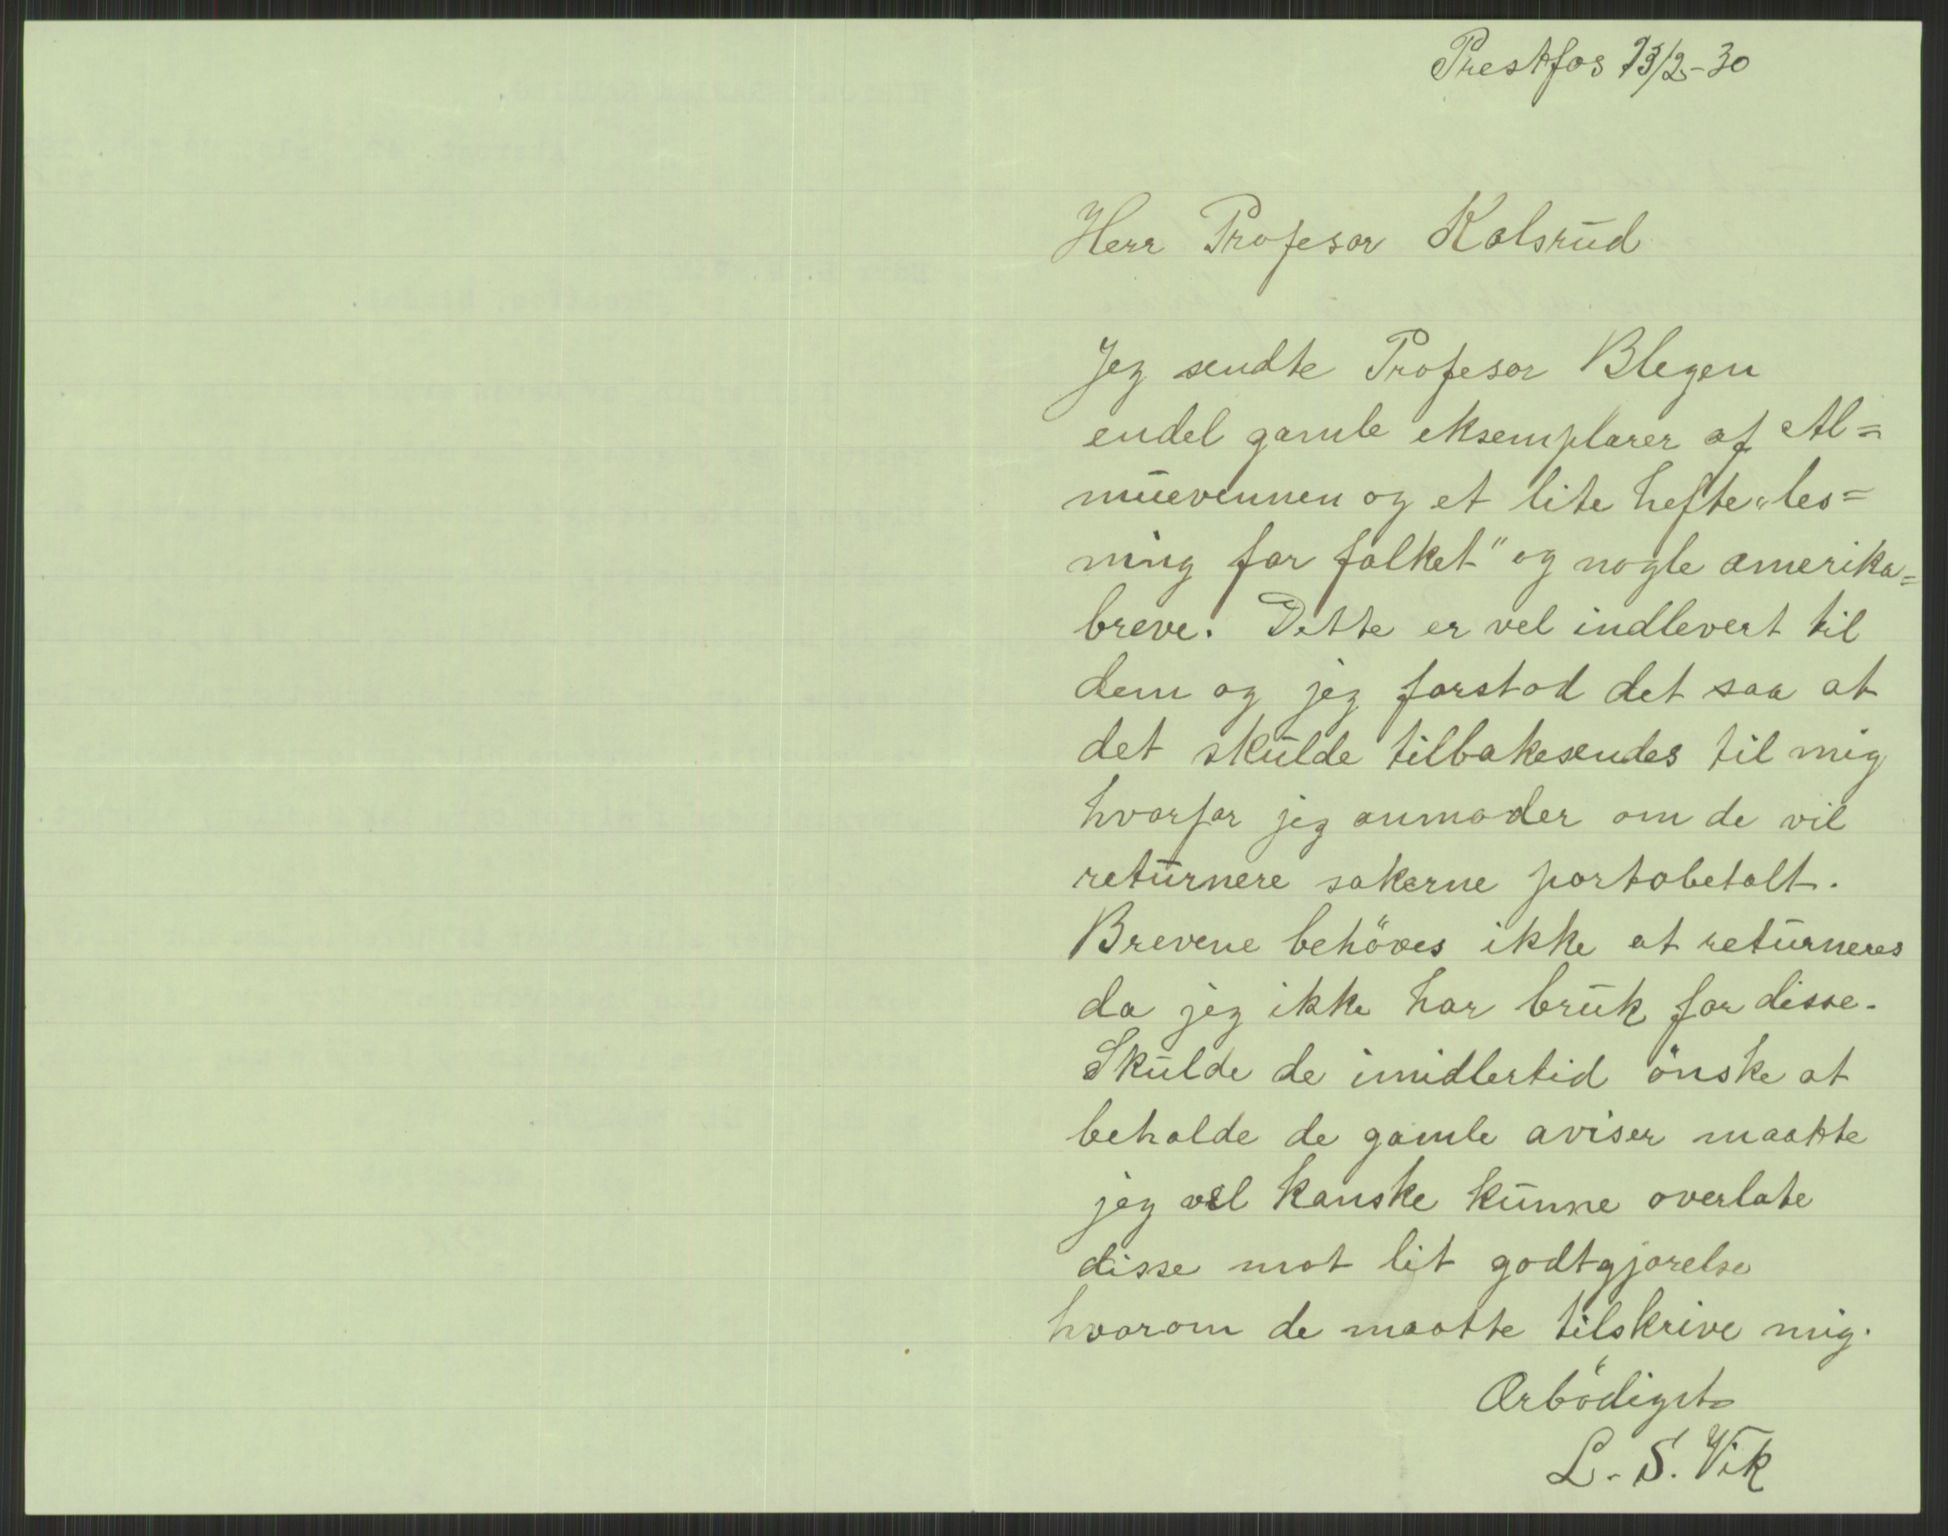 Prestfos 13/2-30
Herr Profesor Kolsrud
Jeg sendte Profesor Blegen
endel gamle eksemplarer af Al=
muevennen og et lite hefte „les=
ning for folket" og nogle amerika=
breve. Dette er vel indlevert til
dem og jeg forstod det saa at
det skulde tilbakesendes til mig
hvorfor jeg anmoder om de vil
returnere sakerne portobetalt.
Brevene behöves ikke at returneres
da jeg ikke har bruk for disse.
Skulde de imidlertid önske at
beholde de gamle aviser maatte
jeg vel kanske kunne overlate
disse mot lit godtgjorelse
hvorom de maatte tilskrive mig.
Ærbödigst
L. S. Vik